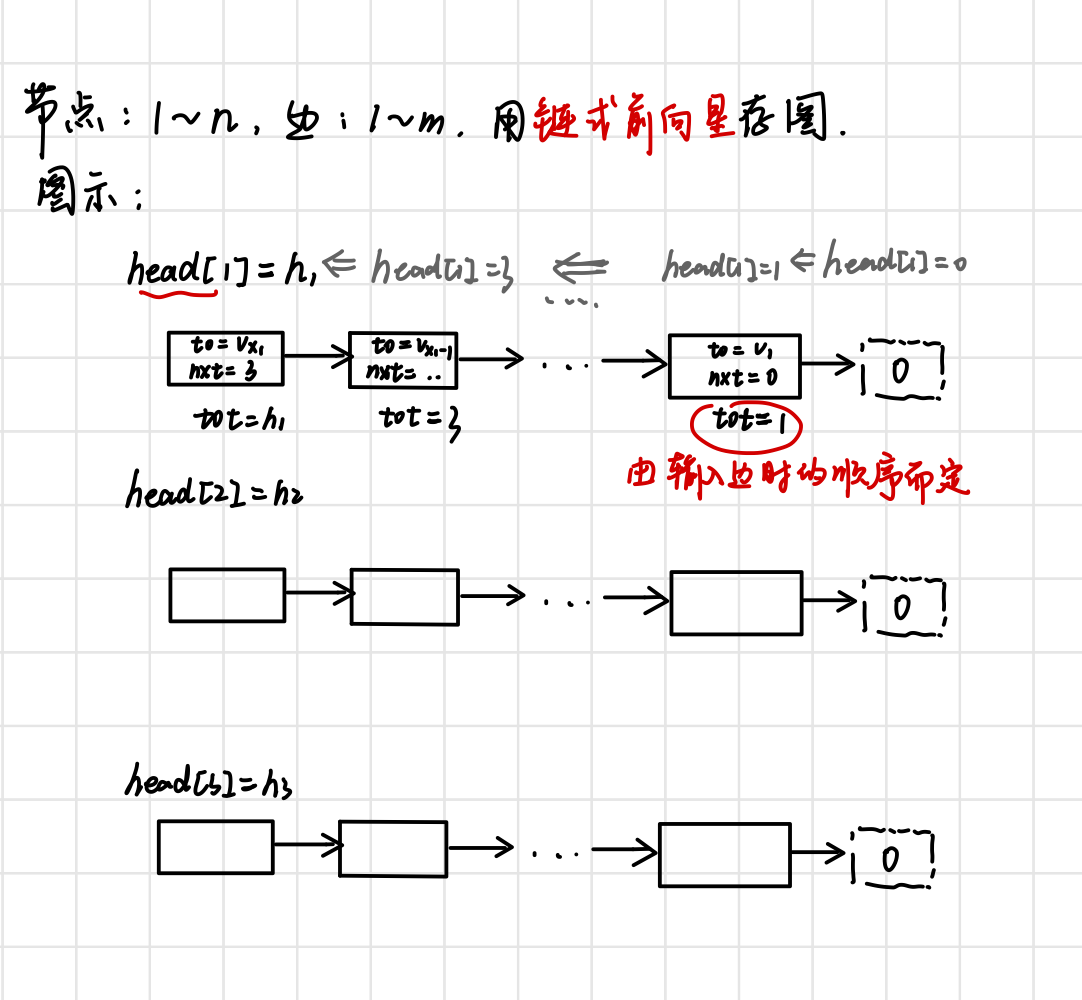 节点：1～n，边：1～m．用链式前向星存图．
图示：
head[1]=h₁ ⇐ head[1]=3 ⇐ head[1]=1 ⇐ head[1]=0
.....
to=vₓ₁ to=vₓ₁₋₁ to=v₁
nxt=3 nxt=.. ... nxt=0 0
tot=h₁ tot=3 tot=1
由输入边时的顺序而定
head[2]=h₂
... 0
head[3]=h₃
... 0